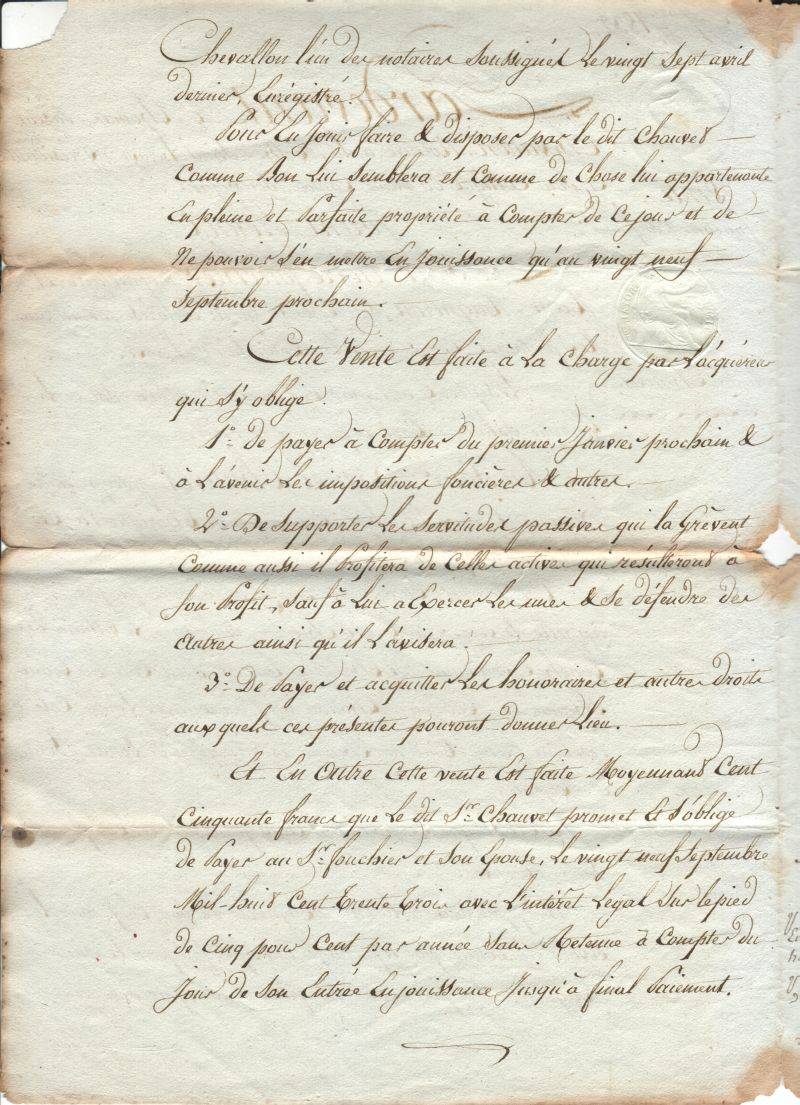 Chevallon l'un des notaires soussignés le vingt sept avril
dernier, Enrégistré.
Pour En Jouir faire & disposer par le dit Chauvet
Comme Bon Lui Semblera et Comme de Chose lui appartenante
En pleine et Parfaite propriété à Compter de Ce jour et de
Ne pouvoir S'en mettre En Jouissance qu'au vingt neuf
Septembre prochain.
Cette Vente Est faite à La Charge par L'acquéreur
qui S'y oblige.
1° de payer à Compter du premier Janvier prochain &
à L'avenir Les impositions foncières & autres.
2° De Supporter Les Servitudes passives qui la Grèvent
Comme aussi il Profitera de Celles actives qui résulteront à
Son Profit, Sauf à Lui a Exercer Les unes & Se défendre des
Autres ainsi qu'il L'avisera.
3° De Payer et acquitter Les honoraires et autres droits
auxquels ces présentes pouront donner Lieu.
Et En Outre Cette vente Est faite Moyennant Cent
Cinquante francs que Le dit Sr. Chauvet promet Et S'oblige
de Payer au Sr. Fouchier et Son Epouse, Le vingt neuf Septembre
Mil-huit Cent Trente Trois avec L'intérêt Legal Sur le pied
de Cinq pour Cent par année Sans Retenue à Compter du
Jour de Son Entrée En jouissance Jusqu'à final Paiement.